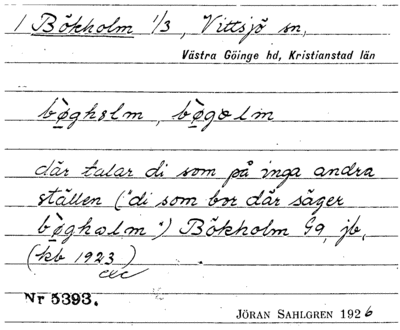 1 Bökholm 1/3, Vittsjö sn,
Västra Göinge hd, Kristianstad län
bø̀ghɘlm, bø̀gɘlm
där talar di som på inga andra
ställen ("di som bor där säger
bø̀ghɘlm") Bökholm Gg, jb,
(kb 1923)
Nr 5393.
JÖRAN SAHLGREN 1926